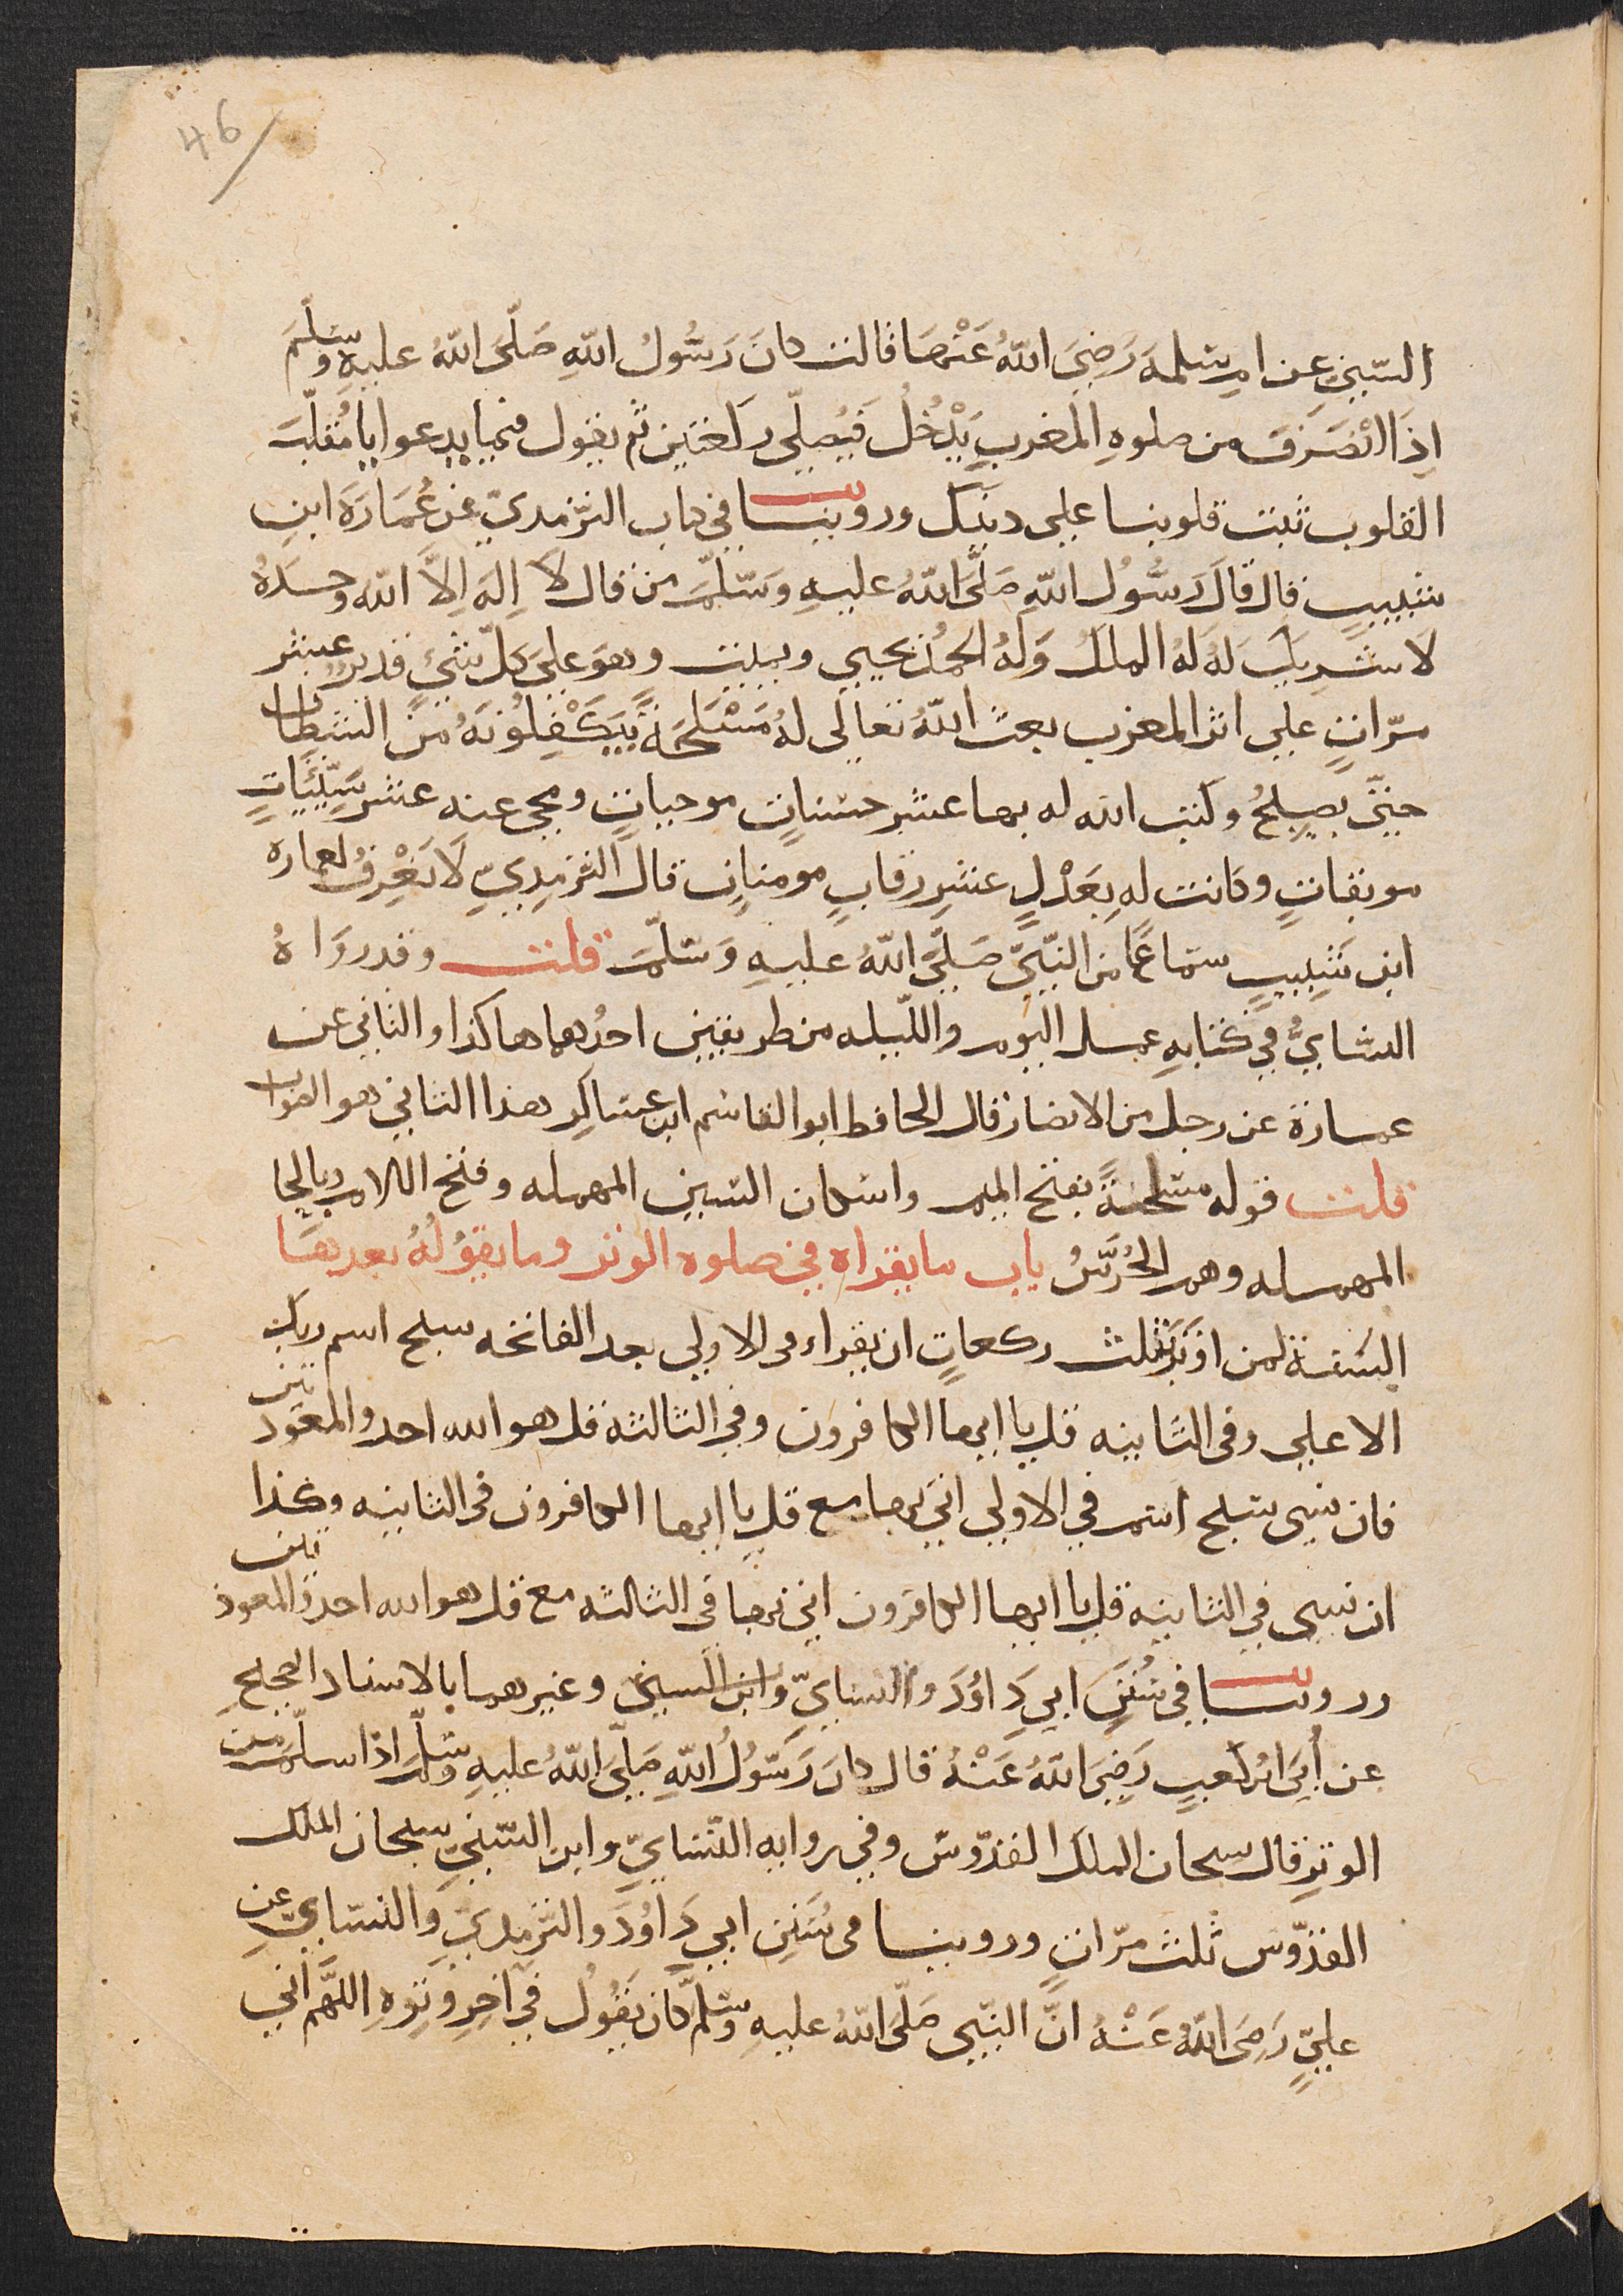 46
السّني عن ام سلمه رَضِيَ اللّهُ عَنْهَا قالت كانَ رَسُولُ اللّهِ صَلَّى اللّهُ عليهِ وسلّمَ
اِذَا انْصَرَفَ من صلوهِ المغربِ يَدْخُلُ فَيُصلّي ركعتين ثم يقول فيما يدعوا يا مُقلّبَ
القلوب ثبت قلوبنا علي دينك وروينا في كتاب الترمديّ عن عُمَارَةَ ابنِ
شبيبٍ قال قالَ رَسُولُ اللّهِ صَلَّى اللّهُ عليهِ وَسَلَّمَ من قال لَا اِلهَ اِلاَّ اللّه وحدَهُ
لَا شَرِيكَ لهُ لهُ الملكُ وَلهُ الحمدُ يحيي ويميت وهوَ عليَ كلّ شئٍ قديرٌ عشر
مرّاتٍ علي اثر المغرب بعث اللّهُ تعالي لهُ مَسْلَحَةً يَتَكَفَّلُونَهُ منَ الشيطان
حتيّ يصبحُ وكتب الله له بها عشر حسناتٍ موجباتٍ ومحى عنه عشر سَيِّئَاتٍ
موبقاتٍ وكانت لهِ بِعَدْلِ عشرِ رقابٍ مومناتٍ قال الترمِديّ لَا نَعْرِفُ لعماره
ابن شَبيبٍ سَمَاعًا من النّبيّ صَلَّى اللّهُ عليهِ وَسَلَّمَ قلت وقد روَاهُ
النسَايُّ في كتابهِ عمل اليوم واللّيله من طريقين احدُهما هاكذا والثاني عن
عمارة عن رجل من الانصار قال الحافط ابو القاسم ابن عساكِر هذا الثاني هو الصواب
قلت قوله مسلحةً بفتح الميم واسكان السين المهمله وفتح اللام وبالحا
المهمله وهم الحُرَّسُ باب ما يقراه في صلوه الوتر وما يقوُلُهُ بعدهَا
السُنة لمن اوتَرَ بثلث ركعاتٍ ان يقراء فى الاولي بعد الفاتحه سبح اسم ربك
الاعلي وفى الثانيه قل يا ايها الكافرون وفي الثالثه قل هو الله احد والمعوذتين
فان نسي سَبح اسم في الاولي اتي بها مع قل يا ايها الكافرون فى الثانيه وكذا
ان نسى في الثانيه قل يا ايها الكافرون اتي بها فى الثالثه مع قل هو الله احد والمعوذتين
وروينا في سُنَنِ ابي دَاوُدَ والنسايّ وابن السني وغيرهما بالاسناد الصحيحِ
عن أُبَيّ ابن كعبٍ رَضِيَ اللّهُ عَنْهُ قال كانَ رَسُولُ اللّهِ صَلَّى اللّهُ عليهِ وسلّمَ اذا سلّمَ من
الوترِ قال سبحان الملك القدّوسِ وفي روايه النّسَايّ وابن السّني سبحان الملك
القدّوس ثلث مرّاتٍ وروينا فى سُنَنِ ابي دَاوُدَ والترمديّ والنسَايّ عن
عليٍّ رَضِىَ اللّهُ عَنْهُ انَّ النّبي صَلَّى اللّهُ عليهِ وسَلَّم كان يَقُولُ في اخِرِ وِترِهِ اللّهَّم اني